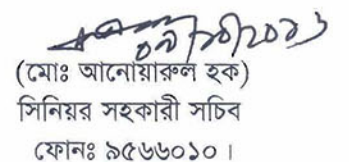 ০৯/১০/২০১৬
(মোঃ আনোয়ারুল হক)
সিনিয়র সহকারী সচিব
ফোনঃ ৯৫৬৬০১০।